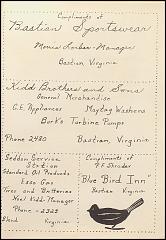 Compliments of
Bastian Sportswear
Morris Lorber - Manager
Bastian, Virginia
Kidd Brothers and Sons
General Merchandise
G.E. Appliances Maytag Washers
Berks Turbine Pumps
Phone 2480 Bastian, Virginia
Seddon Service
Station
Standard Oil Products
Esso Gas
Tires and Batteries
Kidd Manager
Phone - 2525
Virginia
Compliments of
Shrader
"Blue Bird Inn"
Bastian Virginia